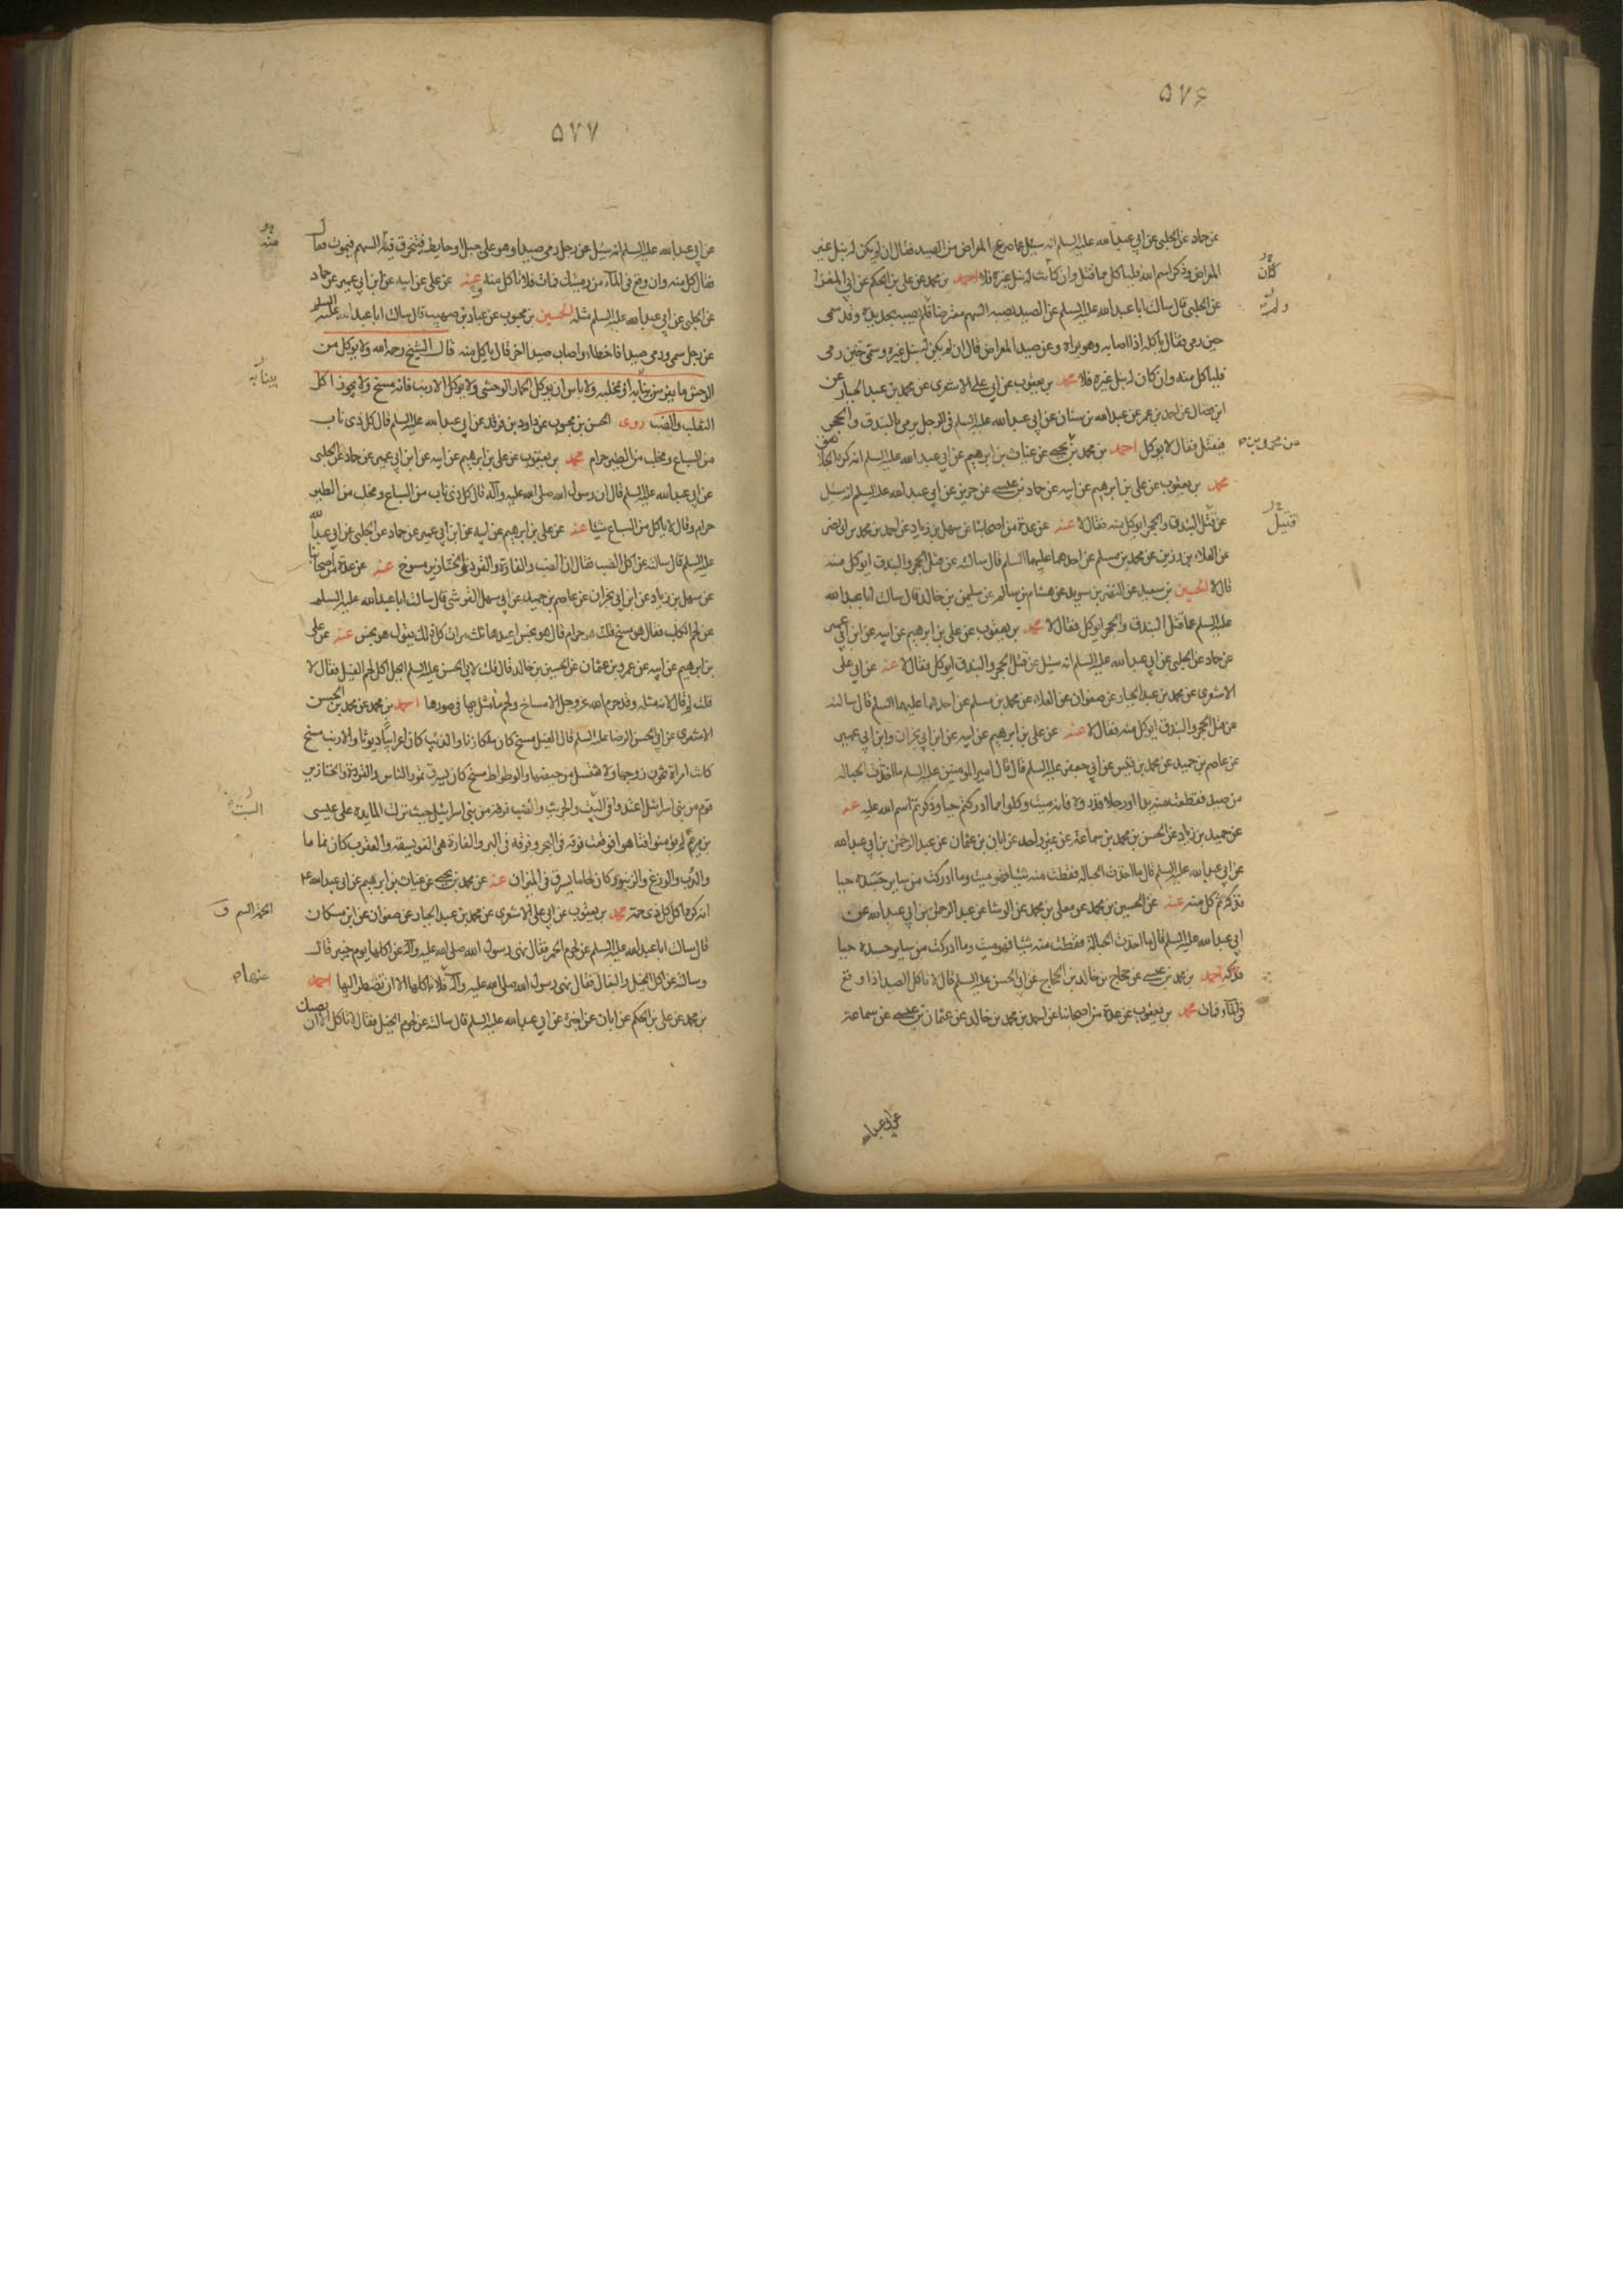 ۵۷۶
عن حماد عن الحلبي عن ابي عبد الله عليه السلم انه سئل عما صرع المعراض من الصيد فقال ان لم يكن له نبل غير
المعراض وذكر اسم الله فلياكل ما قتل وان كانت له نبل غيره فلا احمد بن محمد عن علي بن الحكم عن ابي المغرا
عن الحلبي قال سالت ابا عبد الله عليه السلم عن الصيد يصيبه السهم معترضا فلم يصبه بحديدة وقد سمى
حين رمى فقال ياكله اذا اصابه وهو يراه وعن صيد المعراض فقال ان لم يكن له نبل غيره وسمى حين رمى
فلياكل منه وان كان له نبل غيره فلا محمد بن يعقوب عن ابي علي الاشعري عن محمد بن عبد الجبار عن
ابن فضال عن احمد بن عمر عن عبد الله بن سنان عن ابي عبد الله عليه السلم في الرجل يرمي بالبندق والحجر
فيقتل فقال لا يوكل احمد بن محمد بن يحيى عن غياث بن ابرهيم عن ابي عبد الله عليه السلم انه كره الجلاهق
محمد بن يعقوب عن علي بن ابرهيم عن ابيه عن حماد بن عيسى عن حريز عن ابي عبد الله عليه السلم انه سئل
عن قتل البندق والحجر ايوكل منه فقال لا عنه عن عدة من اصحابنا عن سهل بن زياد عن احمد بن محمد بن ابي نصر
عن العلاء بن رزين عن محمد بن مسلم عن احدهما عليهما السلم قال سالته عن قتل الحجر والبندق ايوكل منه
قال لا الحسين بن سعيد عن النضر بن سويد عن هشام بن سالم عن سليمن بن خالد قال سالت ابا عبد الله
عليه السلم عما قتل البندق والحجر ايوكل فقال لا محمد بن يعقوب عن علي بن ابرهيم عن ابيه عن ابن ابي عمير
عن حماد عن الحلبي عن ابي عبد الله عليه السلم انه سئل عن قتل الحجر والبندق ايوكل فقال لا عنه عن ابي علي
الاشعري عن محمد بن عبد الجبار عن صفوان عن العلاء عن محمد بن مسلم عن احدهما عليهما السلم قال سالته
عن قتل الحجر والبندق ايوكل منه فقال لا عنه عن علي بن ابرهيم عن ابيه عن ابن ابي نجران وابن ابي عمير
عن عاصم بن حميد عن محمد بن قيس عن ابي جعفر عليه السلم قال قال امير المومنين عليه السلم ما اخذت الحبالة
من صيد فقطعت منه يدا او رجلا فذروه فانه ميت وكلوا مما ادركتم حيا وذكرتم اسم الله عليه عنه
عن حميد بن زياد عن الحسن بن محمد بن سماعة عن غير واحد عن ابان بن عثمان عن عبد الرحمن بن ابي عبد الله
عن ابي عبد الله عليه السلم قال ما اخذت الحبالة فقطعت منه شيئا فهو ميت وما ادركت من ساير جسده حيا
فذكه ثم كل منه عنه عن الحسين بن محمد عن معلى بن محمد عن الوشا عن عبد الرحمن بن ابي عبد الله عن
ابي عبد الله عليه السلم قال ما اخذت الحبالة فقطعت منه شيئا فهو ميت وما ادركت من ساير جسده حيا
فذكه احمد بن محمد بن عيسى عن حجاج بن خالد بن الحجاج عن ابي الحسن عليه السلم قال لا تاكل الصيد اذا وقع
في الماء فمات محمد بن يعقوب عن عدة من اصحابنا عن احمد بن محمد بن خالد عن عثمان بن عيسى عن سماعة
عن ابي عبد الله
كان
قتيل
۵۷۷
عن ابي عبد الله عليه السلم انه سئل عن رجل رمى صيدا وهو على جبل او حايط فيخرق فيه السهم فيموت فقال
فقال كل منه وان وقع في الماء من رميتك فمات فلا تاكل منه عنه عن علي عن ابيه عن ابن ابي عمير عن حماد
عن الحلبي عن ابي عبد الله عليه السلم مثله الحسين بن محبوب عن عباد بن صهيب قال سالت ابا عبد الله عليه السلم
عن رجل سمى ورمى صيدا فاخطاء واصاب صيدا اخر قال ياكل منه قال الشيخ رحمه الله ولا يوكل من
الوحش ما يفرس بنابه او مخلبه ولا باس ان يوكل الحمار الوحشي ولا يوكل الارنب فانه مسخ ولا يجوز اكل
الثعلب والضب روى الحسن بن محبوب عن داود بن فرقد عن ابي عبد الله عليه السلم قال كل ذى ناب
من السباع ومخلب من الطير حرام محمد بن يعقوب عن علي بن ابرهيم عن ابيه عن ابن ابي عمير عن حماد عن الحلبي
عن ابي عبد الله عليه السلم قال ان رسول الله صلى الله عليه وآله قال كل ذى ناب من السباع ومخلب من الطير
حرام وقال لا ياكل من السباع شيئا عنه عن علي بن ابرهيم عن ابيه عن ابن ابي عمير عن حماد عن الحلبي عن ابي عبد الله
عليه السلم قال سالته عن اكل الضب فقال ان الضب والفارة والقردة والخنازير مسوخ عنه عن عدة من اصحابنا
عن سهل بن زياد عن ابن ابي نجران عن عاصم بن حميد عن ابي سهل القرشي قال سالت ابا عبد الله عليه السلم
عن لحم الكلب فقال هو مسخ قلت هو حرام قال هو نجس اعيدها ثلث مرات كل ذلك يقول هو نجس عنه عن علي
بن ابرهيم عن ابيه عن عمرو بن عثمان عن الحسين بن خالد قال قلت لابي الحسن عليه السلم ايحل اكل لحم الفيل فقال لا
قلت لم قال لانه مثلة وقد حرم الله عز وجل الامساخ ولحم ما مثل بها في صورها احمد بن محمد عن محمد بن الحسن
الاشعري عن ابي الحسن الرضا عليه السلم قال الفيل مسخ كان ملكا زناء والذئب كان اعرابيا ديوثا والارنب مسخ
كانت امراة تخون زوجها ولا تغتسل من حيضها والوطواط مسخ كان يسرق تمور الناس والقردة والخنازير
قوم من بني اسرائيل اعتدوا في السبت والجريث والضب فرقة من بني اسرائيل حيث نزلت المايدة على عيسى
بن مريم لم يومنوا فتاهوا فوقعت فرقة في البحر وفرقة في البر والفارة هي الفويسقة والعقرب كان نماما
والدب والوزغ والزنبور كان لحاما يسرق في الميزان عنه عن محمد بن يحيى عن غياث بن ابرهيم عن ابي عبد الله ع
انه كره اكل كل ذى حمة محمد بن يعقوب عن ابي علي الاشعري عن محمد بن عبد الجبار عن صفوان عن ابن مسكان
قال سالت ابا عبد الله عليه السلم عن لحوم الحمر فقال نهى رسول الله صلى الله عليه وآله عن اكلها يوم خيبر قال
وسالته عن اكل الخيل والبغال فقال نهى رسول الله صلى الله عليه وآله فلا تاكلها الا ان تضطر اليها احمد
بن محمد عن علي بن الحكم عن ابان عن اخبره عن ابي عبد الله عليه السلم قال سالته عن لحوم الخيل فقال لا تاكل الا ان تصيبك
منه
السبت
الحمة السم ق
عنها م